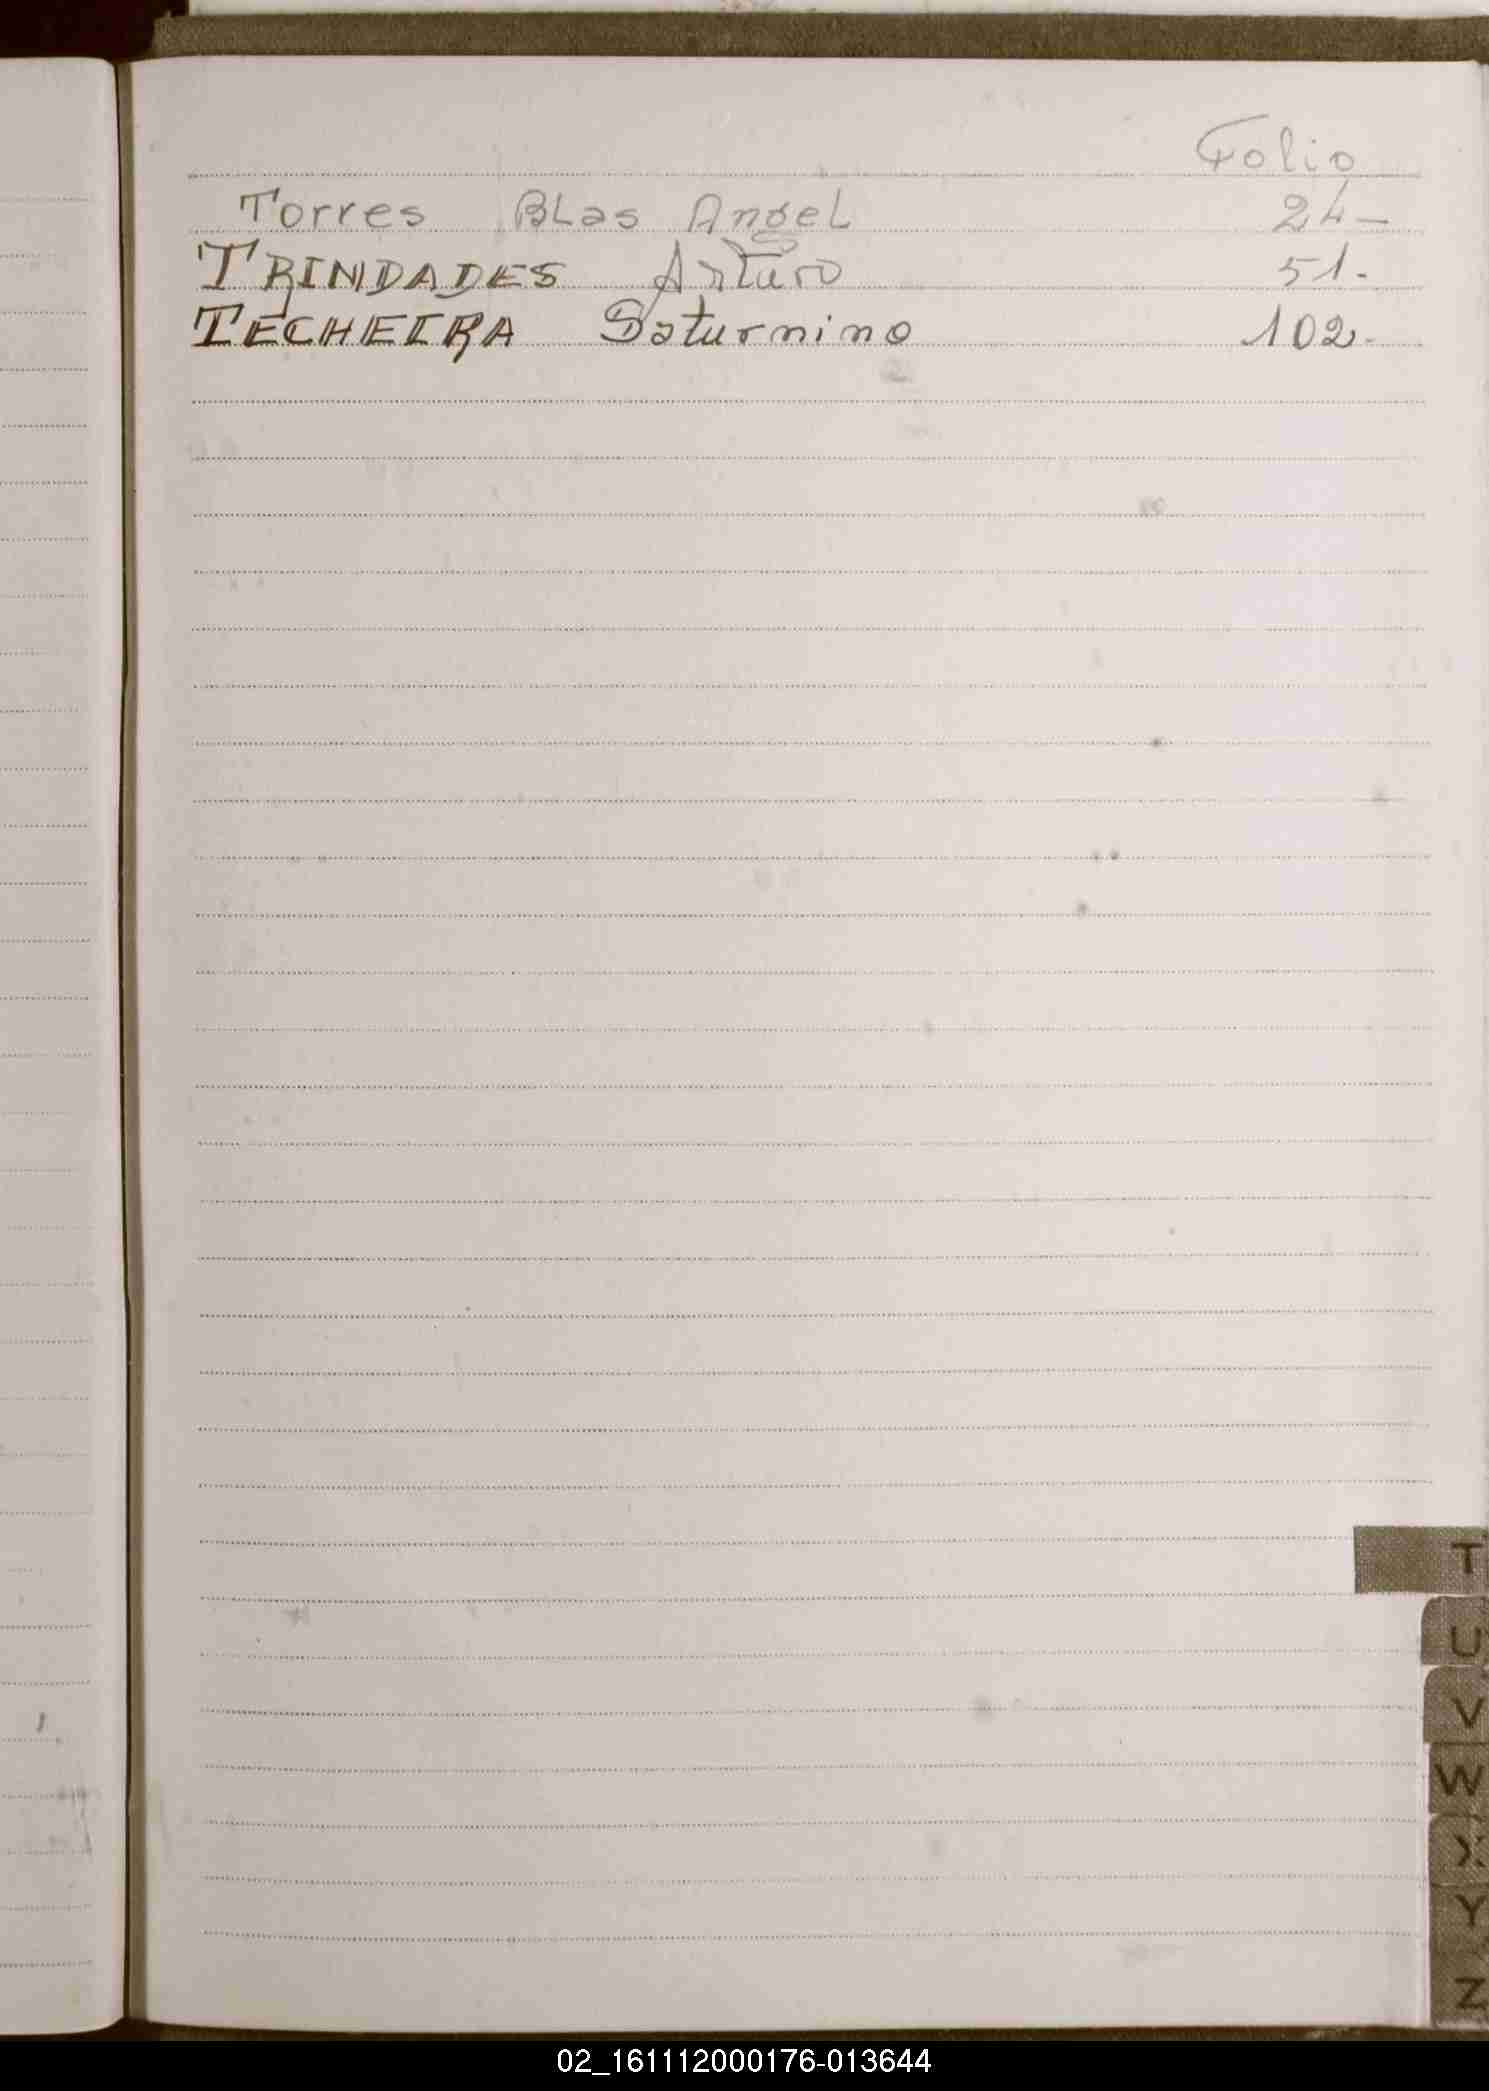 Folio
Torres Blas Angel 24-
TRINDADES Arturo 51.
TECHEIRA Saturnino 102.
T
U
V
W
X
Y
Z
02_161112000176-013644